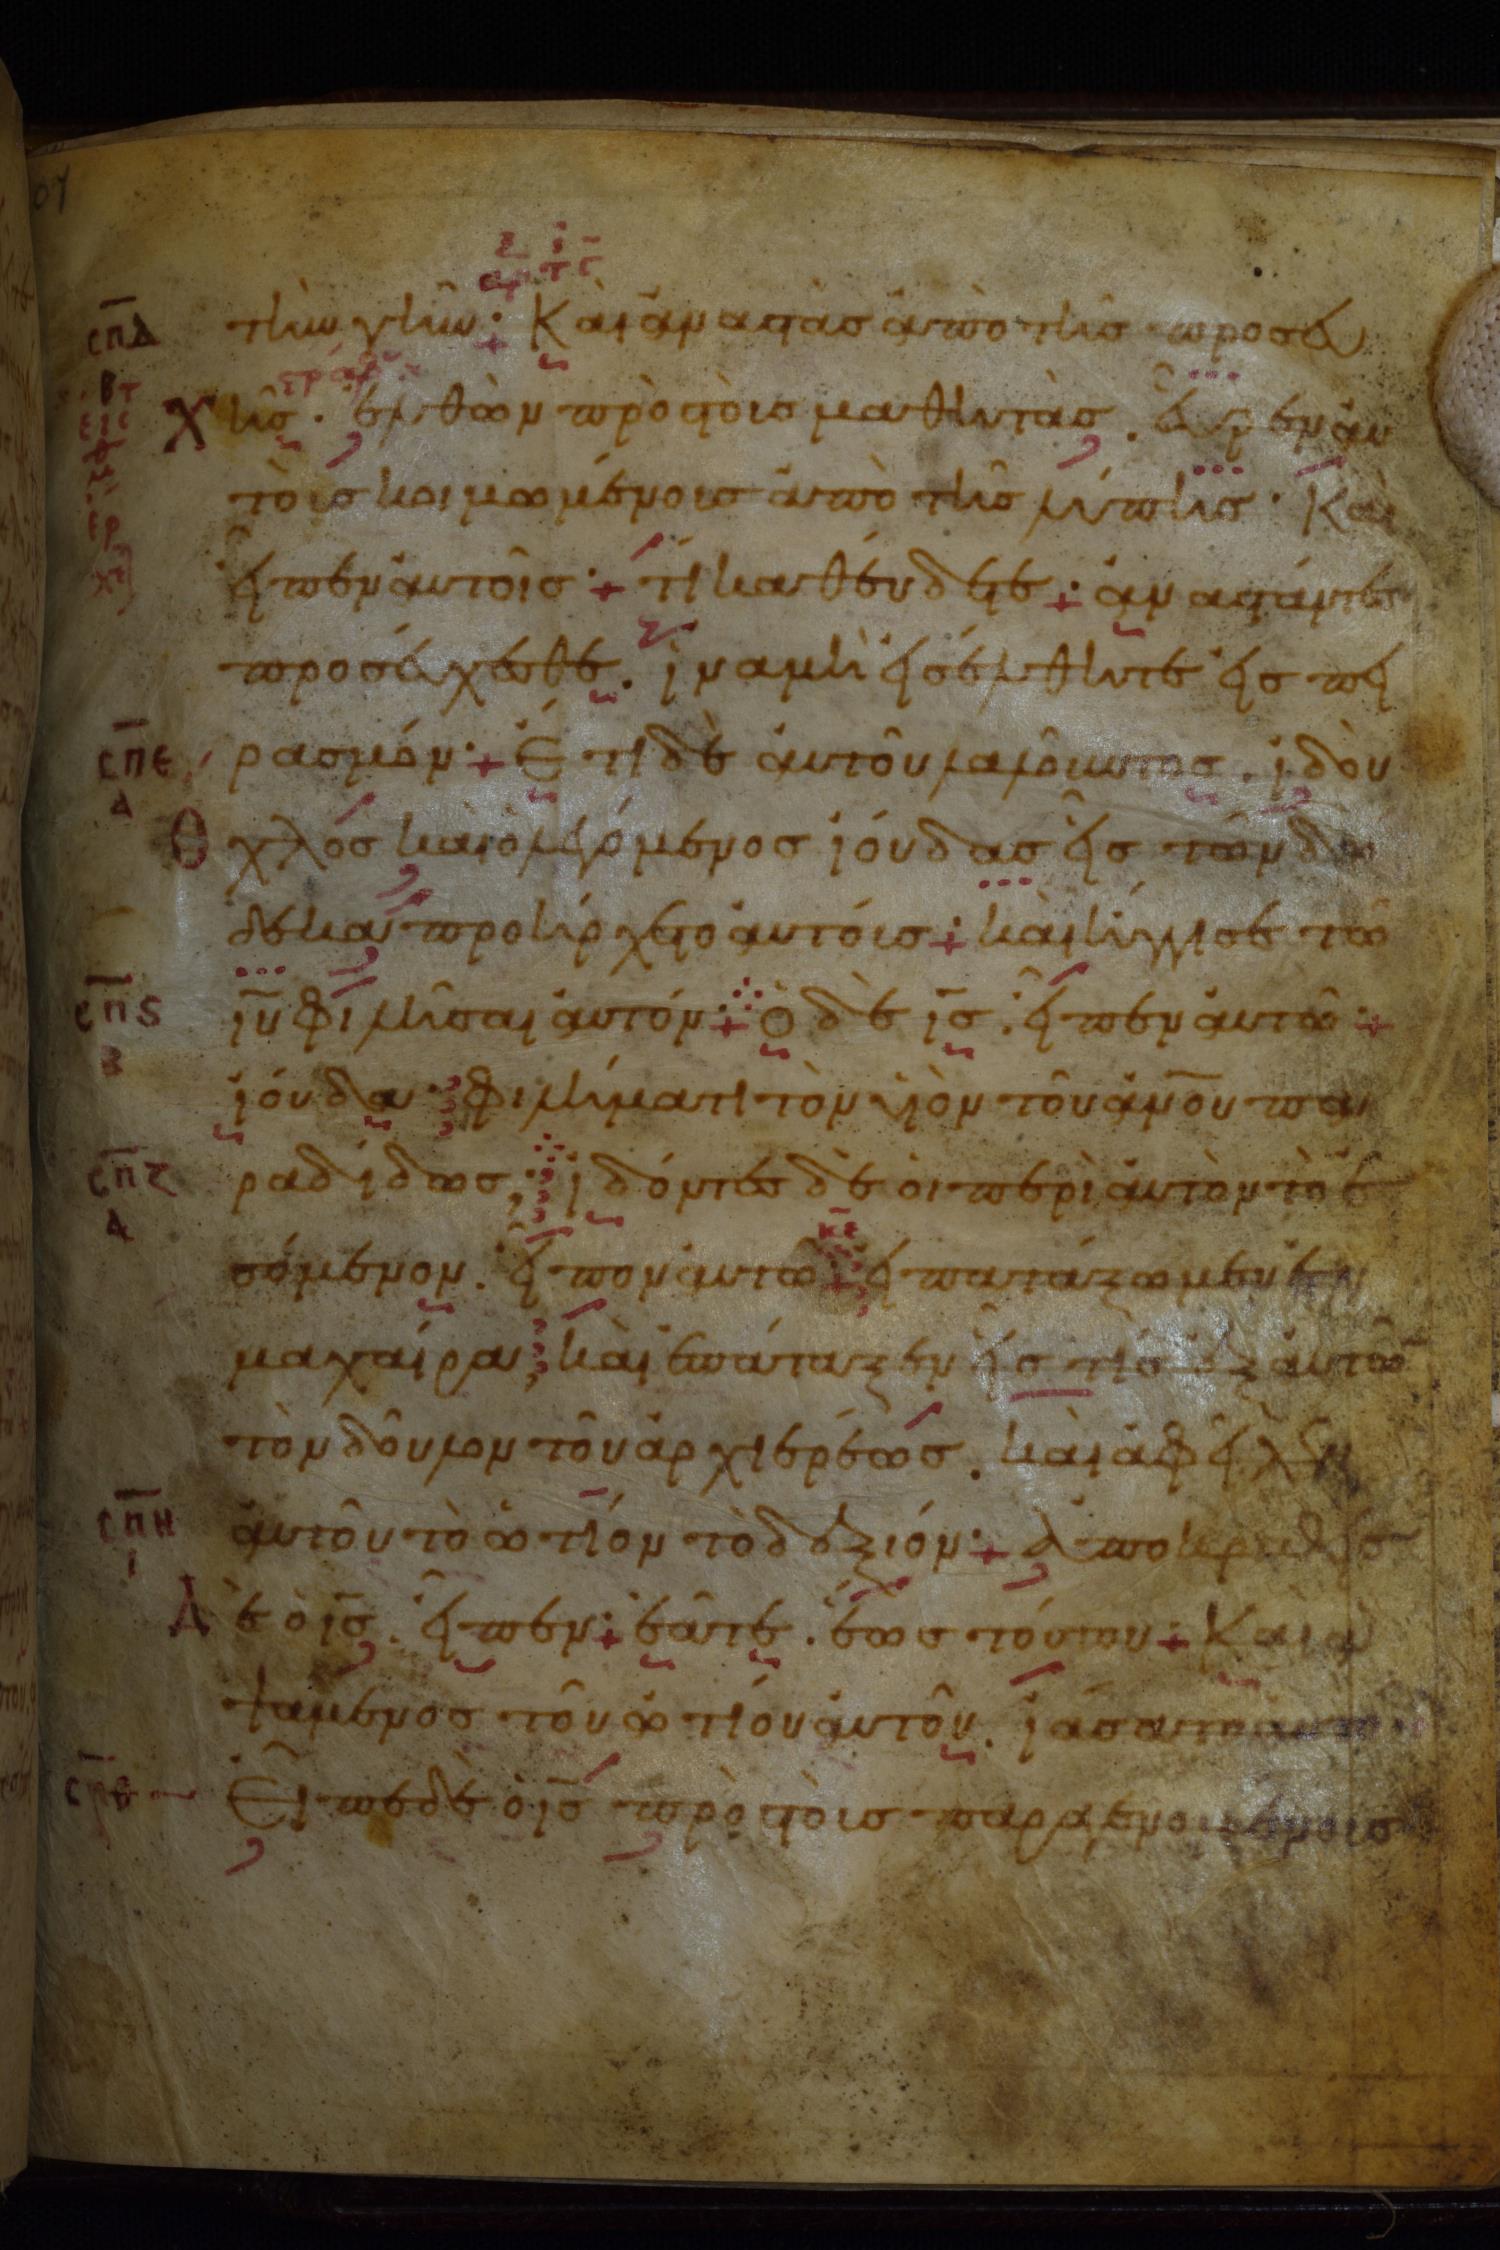 τὴν γῆν· Καὶ ἀναστὰς ἀπὸ τῆς προσευ
χῆς· ἐλθὼν πρὸς τοὺς μαθητὰς. εὗρεν αὐ
τοὺς κοιμωμένους ἀπὸ τῆς λύπης· Καὶ
εἶπεν αὐτοῖς· τί καθεύδετε· ἀναστάντες
προσεύχεσθε. ἵνα μὴ εἰσέλθητε εἰς πει
ρασμόν· Ἔτι δὲ αὐτοῦ λαλοῦντος. ἰδοὺ
ὄχλος καὶ ὁ λεγόμενος ἰούδας εἷς τῶν δώ
δεκα προήρχετο αὐτοῖς· καὶ ἤγγισε τῶ
ἰῦ φιλῆσαι αὐτόν· ὁ δὲ ἰς. εἶπεν αὐτῶ·
ἰούδα· φιλήματι τὸν υἱὸν τοῦ ἀνου πα
ραδίδως; ἰδόντες δὲ οἱ περὶ αὐτὸν τὸ ἐ
σόμενον. εἶπον αὐτῶ κε εἰ πατάξωμεν ἐν
μαχαίρα; καὶ ἐπάταξεν εἷς τίς ἐξ αὐτῶ
τὸν δοῦλον τοῦ ἀρχιερέως. καὶ ἀφεῖλεν
αὐτοῦ τὸ ὠτίον τὸ δεξιόν· ἀποκριθεὶς
δὲ ὁ ις. εἶπεν· ἐᾶτε. ἕως τούτου· Καὶ ἁ
ψάμενος τοῦ ὠτίου αὐτοῦ. ἰάσατο αὐτὸν
Εἶπε δὲ ὁ ις πρὸς τοὺς παραγενομένους